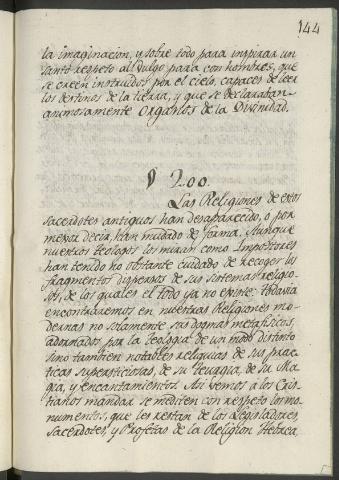 144
la imaginacion, y sobre todo para inspirar un
santo respeto al vulgo para con hombres, que
se creen instruidos por el cielo, capaces de leer
los destinos de la tierra, y que se declaraban
animosamente Organos de la Divinidad.
§ 200.
Las Religiones de estos
sacerdotes antiguos han desaparecido, o por
mexor decir, han mudado de forma. Aunque
nuestros teologos los miran como Impostores
han tenido no obstante cuidado de recoger los
fragmentos dispersos de sus sistemas religio-
sos, de los quales el todo ya no existe: todavia
encontraremos en nuestras Religiones mo-
dernas no solamente sus dogmas metafisicos,
adornados por la teologia de un modo distinto
sino tambien notables reliquias de sus prac-
ticas supersticiosas, de su teurgia, de su Ma-
gia, y encantamientos. Asi vemos a los Cris-
tianos mandar se mediten con respeto los mo-
numentos, que les restan de los Legisladores,
Sacerdotes, y Profetas de la Religion Hebrea